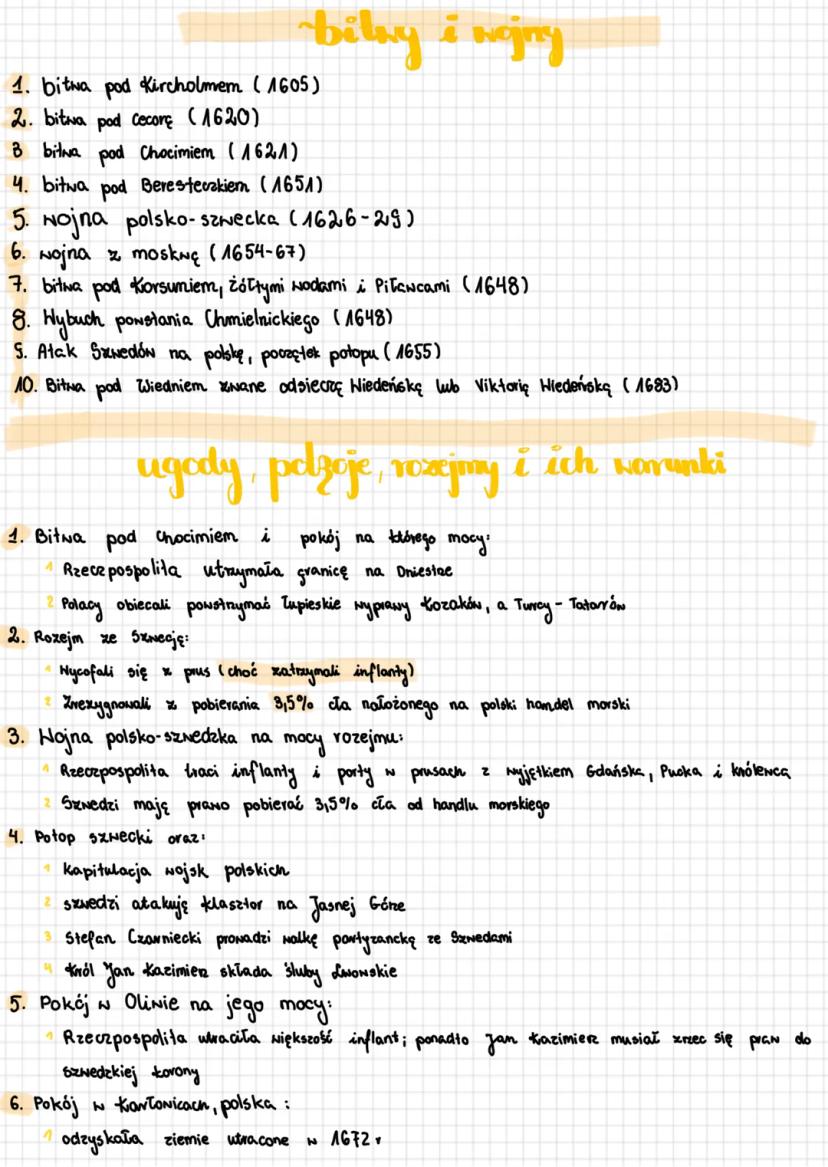 bitwy i wojny
1. bitwa pod Kircholmem (1605)
2. bitwa pod Cecorą (1620)
3 bitwa pod Chocimiem (1621)
4. bitwa pod Beresteczkiem (1651)
5. wojna polsko-szwecka (1626-29)
6. wojna z moskwą (1654-67)
7. bitwa pod Korsuniem, żółtymi wodami i Piławcami (1648)
8. Wybuch powstania Chmielnickiego (1648)
9. Atak Szwedów na polskę, początek potopu (1655)
10. Bitwa pod Wiedniem znane odsieczą Wiedeńską lub Viktorią Wiedeńską (1683)
ugody, pokoje, rozejmy i ich warunki
1. Bitwa pod Chocimiem i pokój na którego mocy:
1 Rzeczpospolita utrzymała granicę na Dniestrze
2 Polacy obiecali powstrzymać łupieskie wyprawy kozaków, a Turcy - Tatarów
2. Rozejm ze Szwecją:
1 Wycofali się z prus (choć zatrzymali inflanty)
2 Zrezygnowali z pobierania 3,5% cła nałożonego na polski handel morski
3. Wojna polsko-szwedzka na mocy rozejmu:
1 Rzeczpospolita traci inflanty i porty w prusach z wyjętkiem Gdańska, Pucka i królewca
2 Szwedzi mają prawo pobierać 3,5% cła od handlu morskiego
4. Potop szwecki oraz:
1 kapitulacja wojsk polskich
2 szwedzi atakują klasztor na Jasnej Górze
3 Stefan Czarniecki prowadzi walkę partyzancką ze Szwedami
4 król Jan Kazimierz składa śluby Lwowskie
5. Pokój w Oliwie na jego mocy:
1 Rzeczpospolita utraciła większość inflant; ponadto Jan kazimierz musiał zrzec się praw do
szwedzkiej korony
6. Pokój w Karłowicach, polska :
1 odzyskała ziemie utracone w 1672r